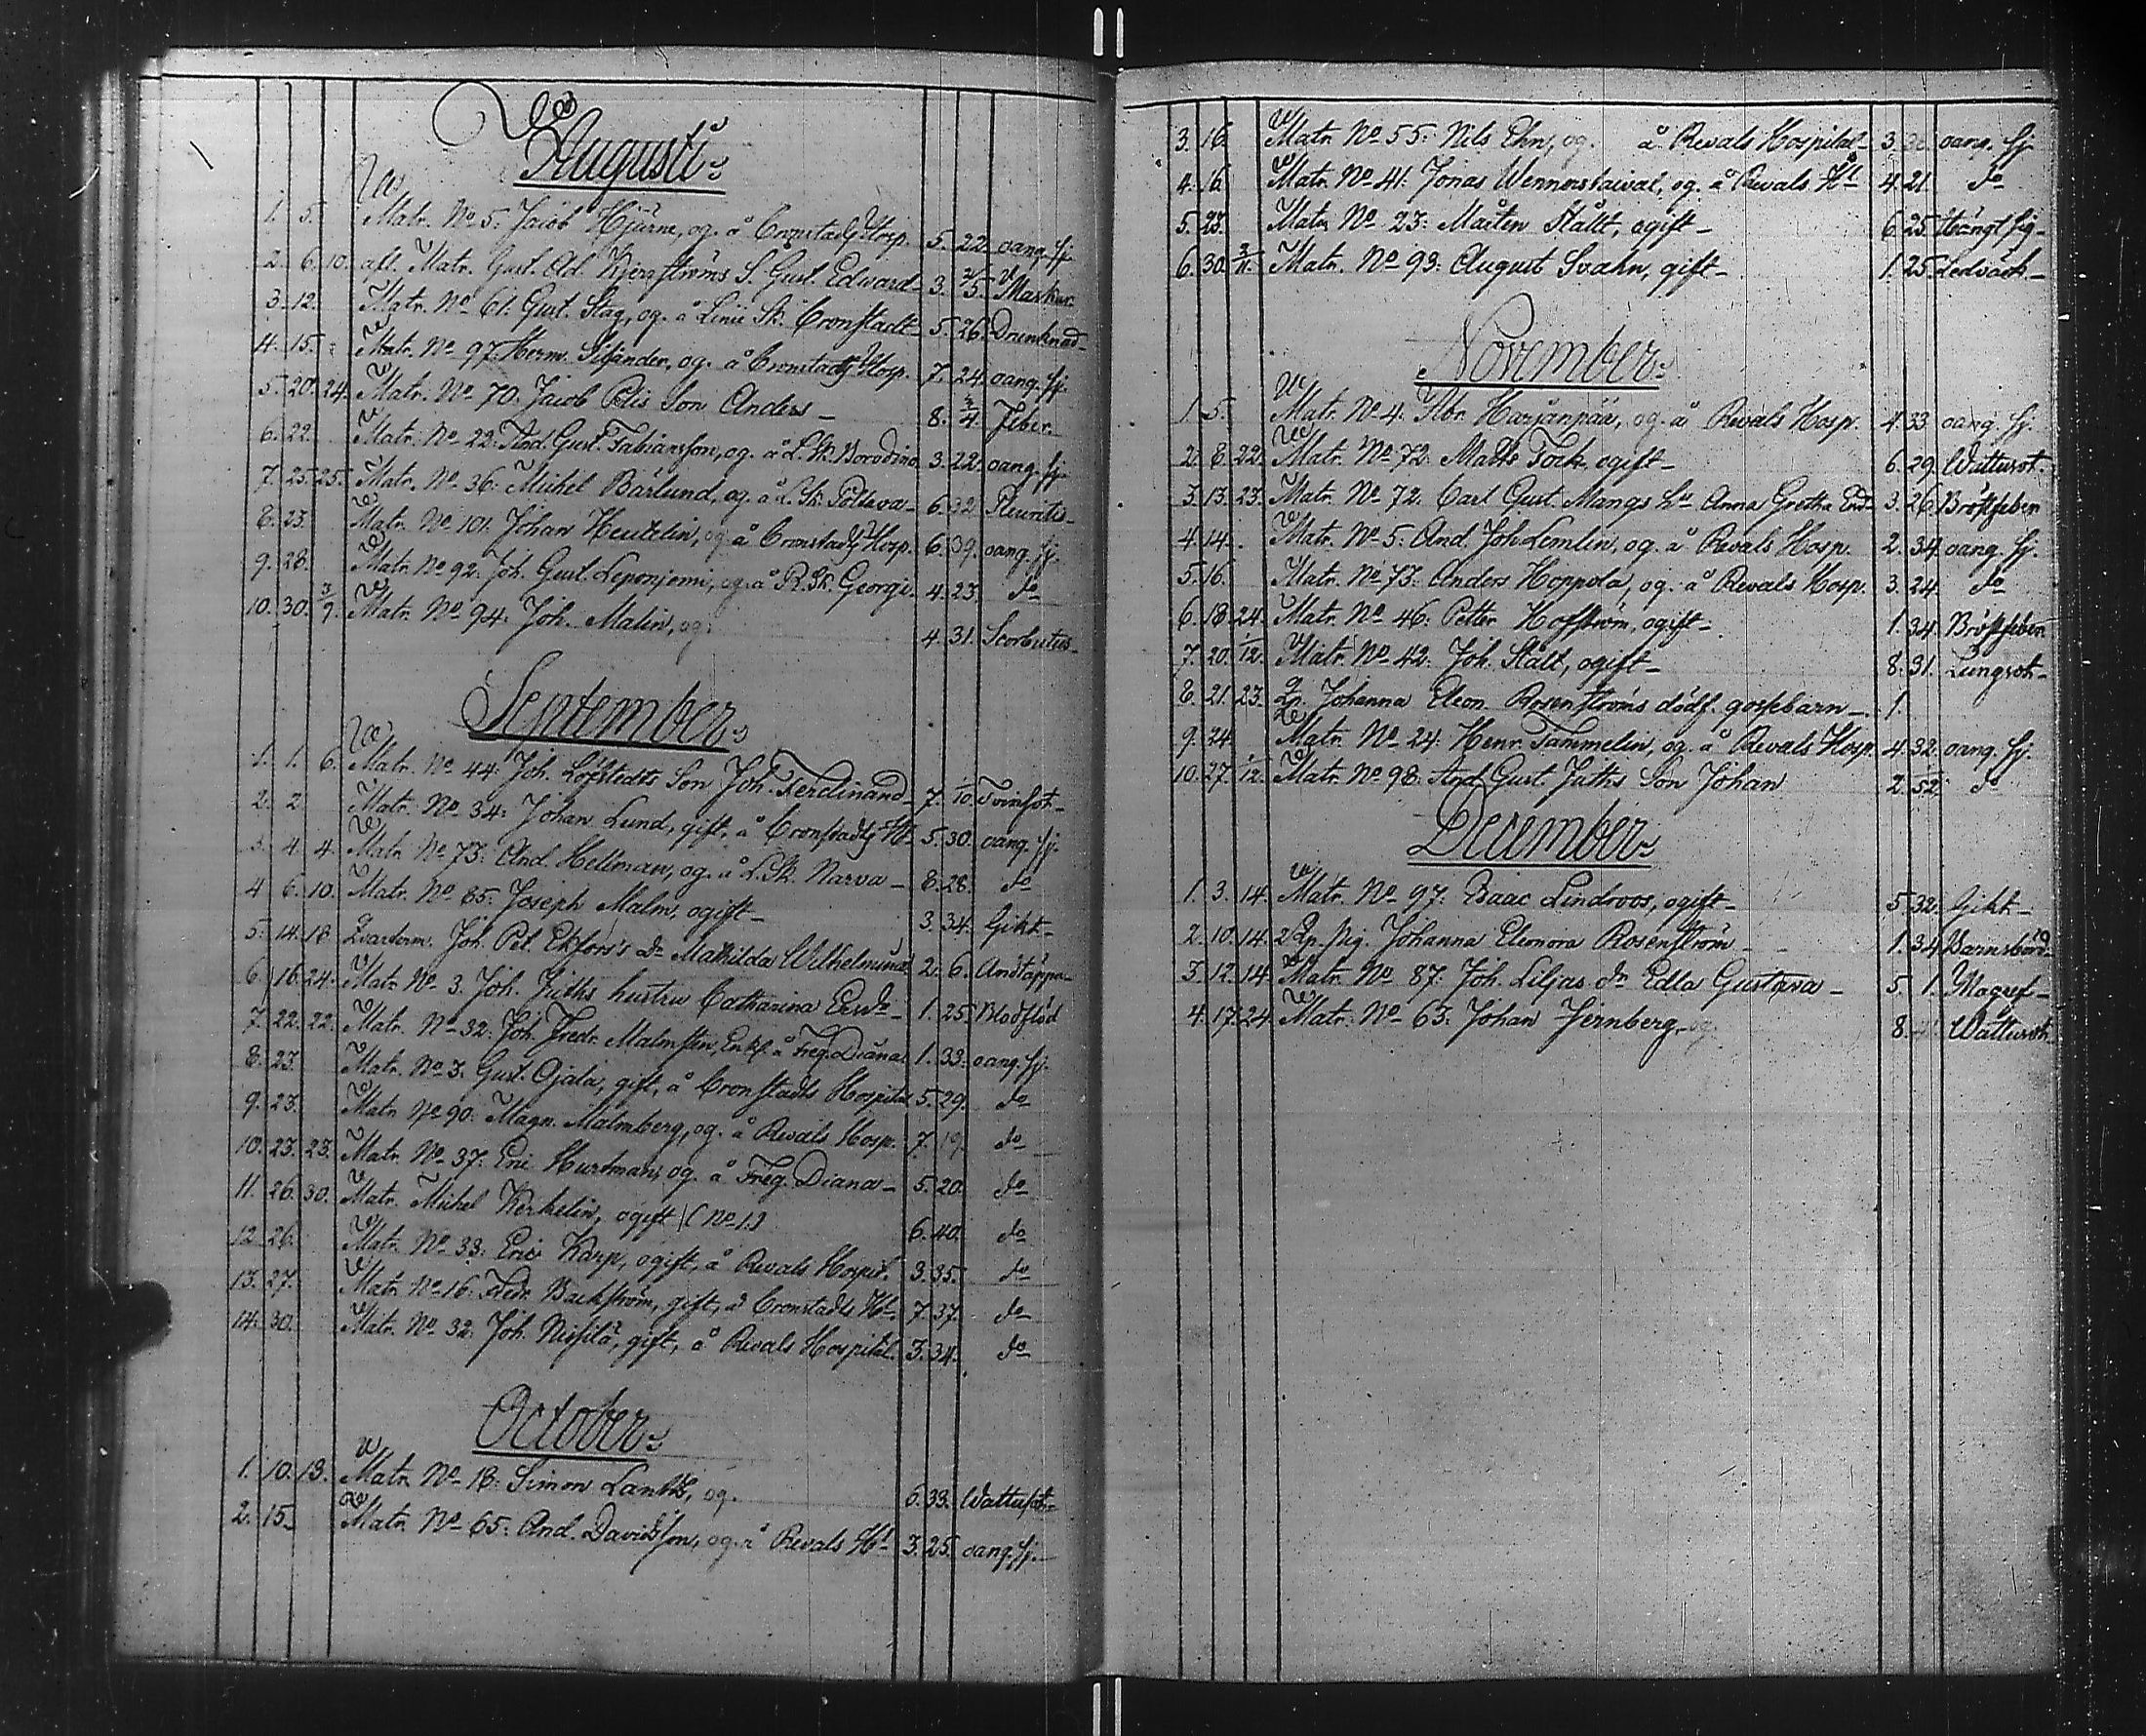 Augusti
1. 5. Matr. No 5: Jacob Hjürne, og. å Cronstadts Hosp. 5. 22. oang. sj.
2. 6. 10. afl. Matr. Gust. Ad. Kjergströms S. Gust. Edward 3. 2/5. Maskar
3. 12. Matr. No 61: Gust. Stag, og. å Linie Sk. Cronstadt 5. 26. Drunknad
4. 15. Matr. No 97: Herm. og. å Cronstadts Hosp. 7. 24. oang. sj.
5. 20. 24. Matr. No 70: Jacob Son Anders 8. 3/4. Feber
6. 22. Matr. No 22: And. Gust. Fabiansson, og. å L. Sk. Borodino 3. 22. oang. sj.
7. 25. 25. Matr. No 36: Michel Bärlund, og. å L. Sk. Poltava 6. 32. Pleuritis
8. 23. Matr. No 101: Johan og. å Cronstadts Hosp. 6. 39. oang. sj.
9. 28. Matr. No 92: Joh. Gust. Leponjemi, og. å R. Sk. Georgi 4. 23. do
10. 30. 3/9. Matr. No 94: Joh. Malin, og. 4. 31. Scorbutus
September
1. 1. 6. Matr. No 44: Joh. Löfstedts Son Joh. Ferdinand 7. 1/10. Tvinsot
2. 2 Matr. No 34: Johan Lund, gift, å Cronstadts Ht 5. 30. oang. sj.
3. 4. 4. Matr. No 73: And. Hellman, og. å L. Sk. Narva 8. 28. do
4 6. 10. Matr. No 85: Joseph Malm, ogift 3. 34. Gikt
5. 14. 18 Qvarterm. Joh. Pet. Ekfors's dr Mathilda Wilhelmina 2. 6. Andtäppa
6. 16. 24. Matr. No 3. Joh. Juths hustru Catharina Ersdr 1. 25. Blodflöd
7. 22. 22. Matr. No 32: Joh. Fredr. Malmsten, Enkl. å Freg. Diana 1. 33. oang. sj.
8. 23. Matr. No 3. Gust. Ojala, gift, å Cronstadts Hospital 5. 29. do
9. 23. Matr. No 90: Magn. Malmberg, og. å Revals Hosp. 7. 19. do
10. 23. 23. Matr. No 37: Eric Hurtman, og. å Freg. Diana 5. 20. do
11. 26. 30. Matr. Michel Kerkelin, ogift (No 1.) 6. 40. do
12 26. Matr. No 33: Eric Karp, ogift, å Revals Hospit. 3. 35. do
13. 27. Matr. No 16: Fredr. Backström, gift, å Cronstadts Ht 7. 37. do
14. 30. Matr. No 32: Joh. Nissilä, gift, å Revals Hospital 3. 34. do
October
1. 10. 13. Matr. No 18: Simon og. 6. 33. Wattusot
2. 15. Matr. No 65: And. Davidsson, og. å Revals Ht 3. 25. oang. sj.
3. 16. Matr. No 55: Nils Ehn, og. å Revals Hospital 3. oang. sj.
4. 16 Matr. No 41: Jonas og. å Revals Ht 4. 21 do
5. 23. Matr. No 23: Mårten Stålt, ogift 6. 25. Hängt sig
6. 30. 3/11. Matr. No 93: August Svahn, gift 1. 25. Ledvärk
November
1. 5. Matr. No 4. Abr. Harjanpää, og. å Revals Hosp. 4. 33 oang. sj.
2. 8. 22. Matr. No 72. Matts Fock, ogift 6. 29. Wattusot.
3. 13. 23. Matr. No 72. Carl Gust. Mangs hu Anna Gretha 3. 26. Bröstfeber
4. 14. Matr. No 5: And. Joh. Lemlin, og. å Revals Hosp. 2. 34. oang. sj.
5. 16. Matr. No 73: Anders Hoppola, og. å Revals Hosp. 3. 24. do
6. 18. 24. Matr. No 46: Petter Hofström, ogift 1. 34. Bröstfeber
7. 20. 1/12. Matr. No 42: Joh. Stält, ogift 8. 31. Lungsot
8. 21. 23. Qp. Johanna Eleon. Rosenströms dödf. gossebarn 1.
9. 24 Matr. No 24: Henr. Tammelin, og. å Revals Hosp. 4. 32. oang. sj.
10. 27. 1/12. Matr. No 98: And. Gust. Juths Son Johan 2. 52. do
December
1. 3. 14. Matr. No 97: Isaac Lindroos, ogift 5. 32. Gikt
2. 10. 14. Qp. Pig. Johanna Eleonora Rosenström 1. 34. Barnsbörd
3. 12. 14. Matr. No 87: Joh. Liljas dr Edla Gustava 5. 1. Magref
4. 17. 24. Matr. No 63: Johan Jernberg, og. 8. Wattusot